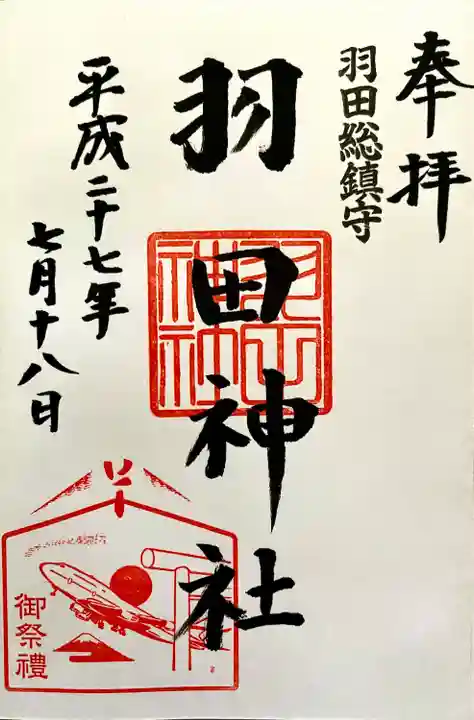 奉拝
羽田総鎮守
羽田神社
平成二十七年
七月十八日
御祭禮